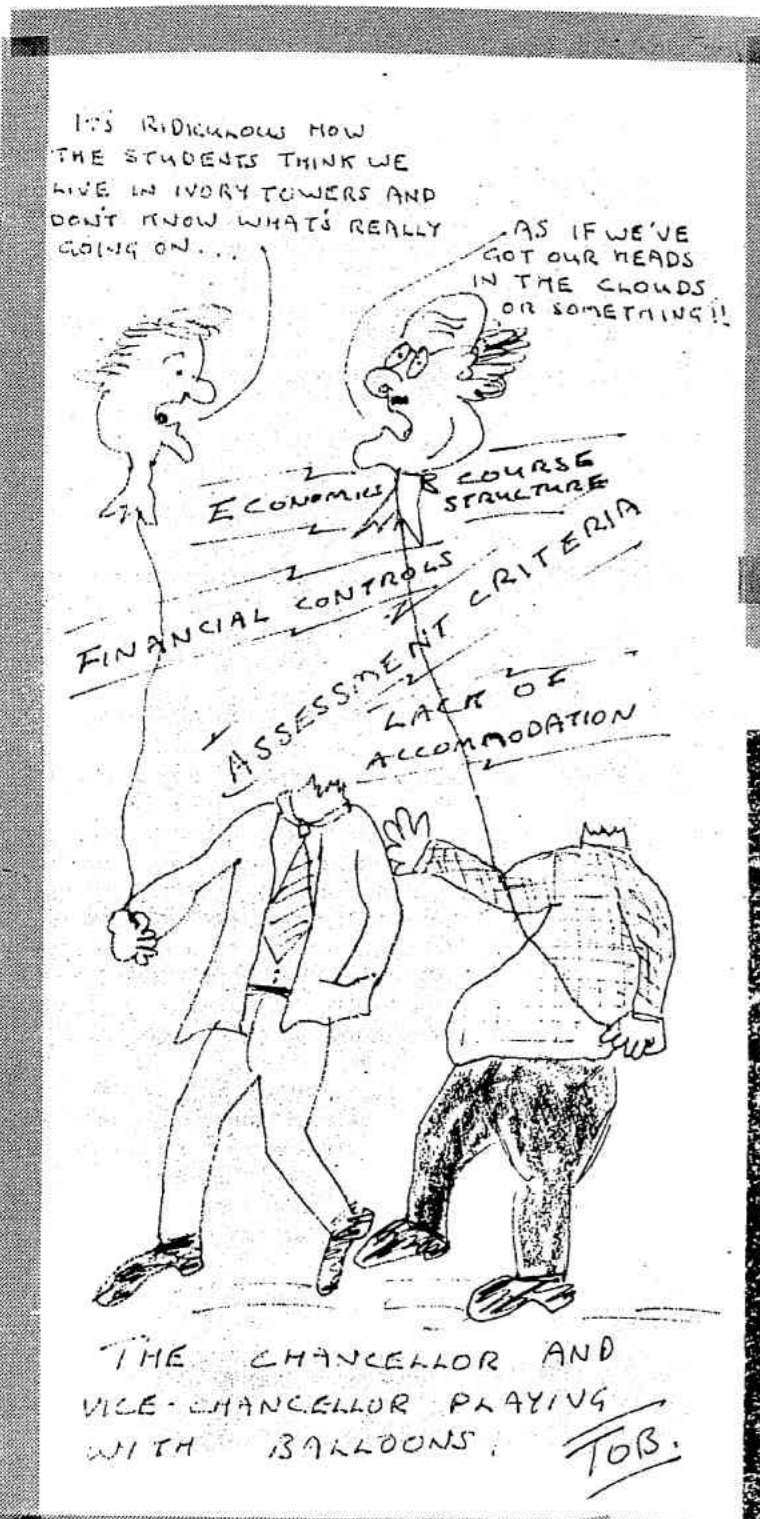 IT'S RIDICULOUS HOW
THE STUDENTS THINK WE
LIVE IN IVORY TOWERS AND
DON'T KNOW WHAT'S REALLY
GOING ON...
AS IF WE'VE
GOT OUR HEADS
IN THE CLOUDS
OR SOMETHING!!
ECONOMICS
COURSE
STRUCTURE
FINANCIAL CONTROLS
ASSESSMENT CRITERIA
LACK OF
ACCOMMODATION
THE CHANCELLOR AND
VICE-CHANCELLOR PLAYING
WITH BALLOONS.
TOB.